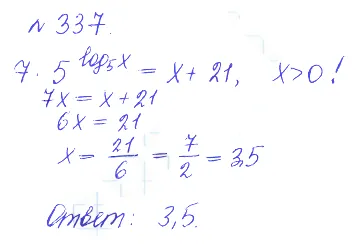 № 337.
7 · 5^{log_5 x} = x + 21, x > 0!
7x = x + 21
6x = 21
x = 21/6 = 7/2 = 3,5
Ответ: 3,5.